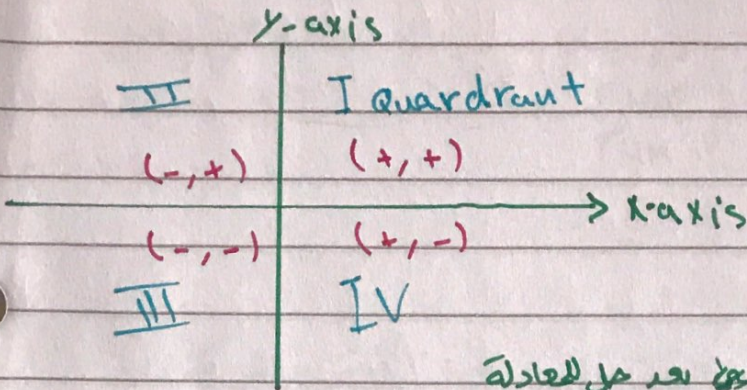 y-axis
II I Quardraut
(-,+) (+,+)
x-axis
(-,-) (+,-)
III IV
حل للمعادلة